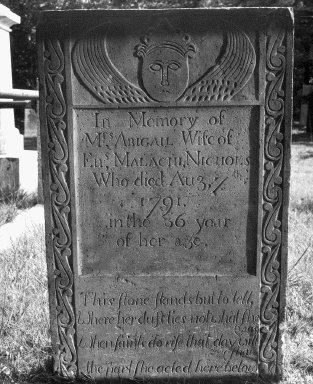 In Memory of
Mrs ABIGAIL Wife of
MALACHI NICHOLS
Who died Aug. 7th
1791.
in the 36 year
of her age.
This ſtone ſtands but to tell,
Where her duſt lies not what ſhe
was
When ſaints do riſe that day will
ſhow
the part ſhe acted here below